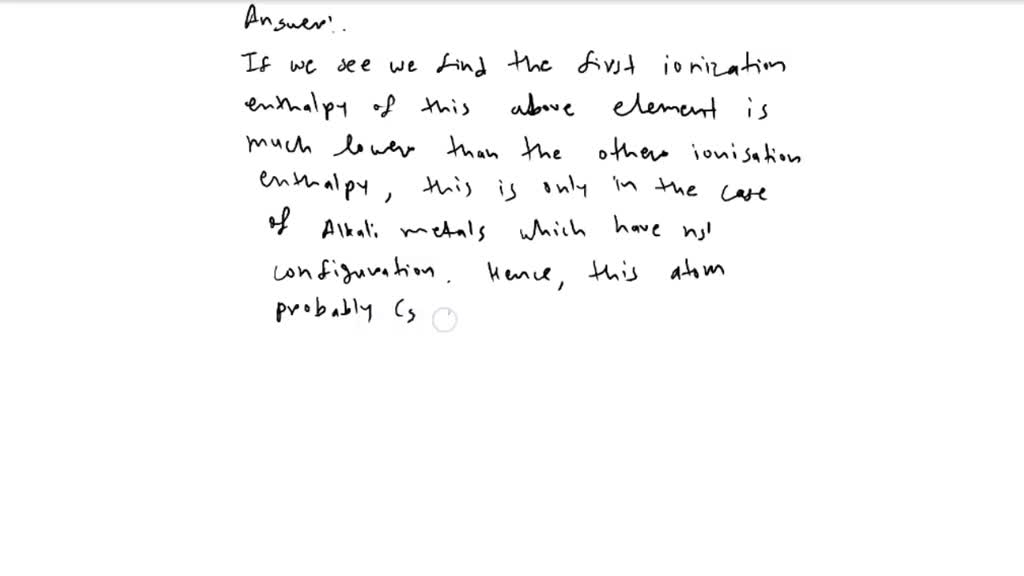 Answer:.
If we see we find the first ionization
enthalpy of this above element is
much lower than the other ionisation
enthalpy, this is only in the case
of Alkali metals which have ns¹
configuration. Hence, this atom
probably Cs